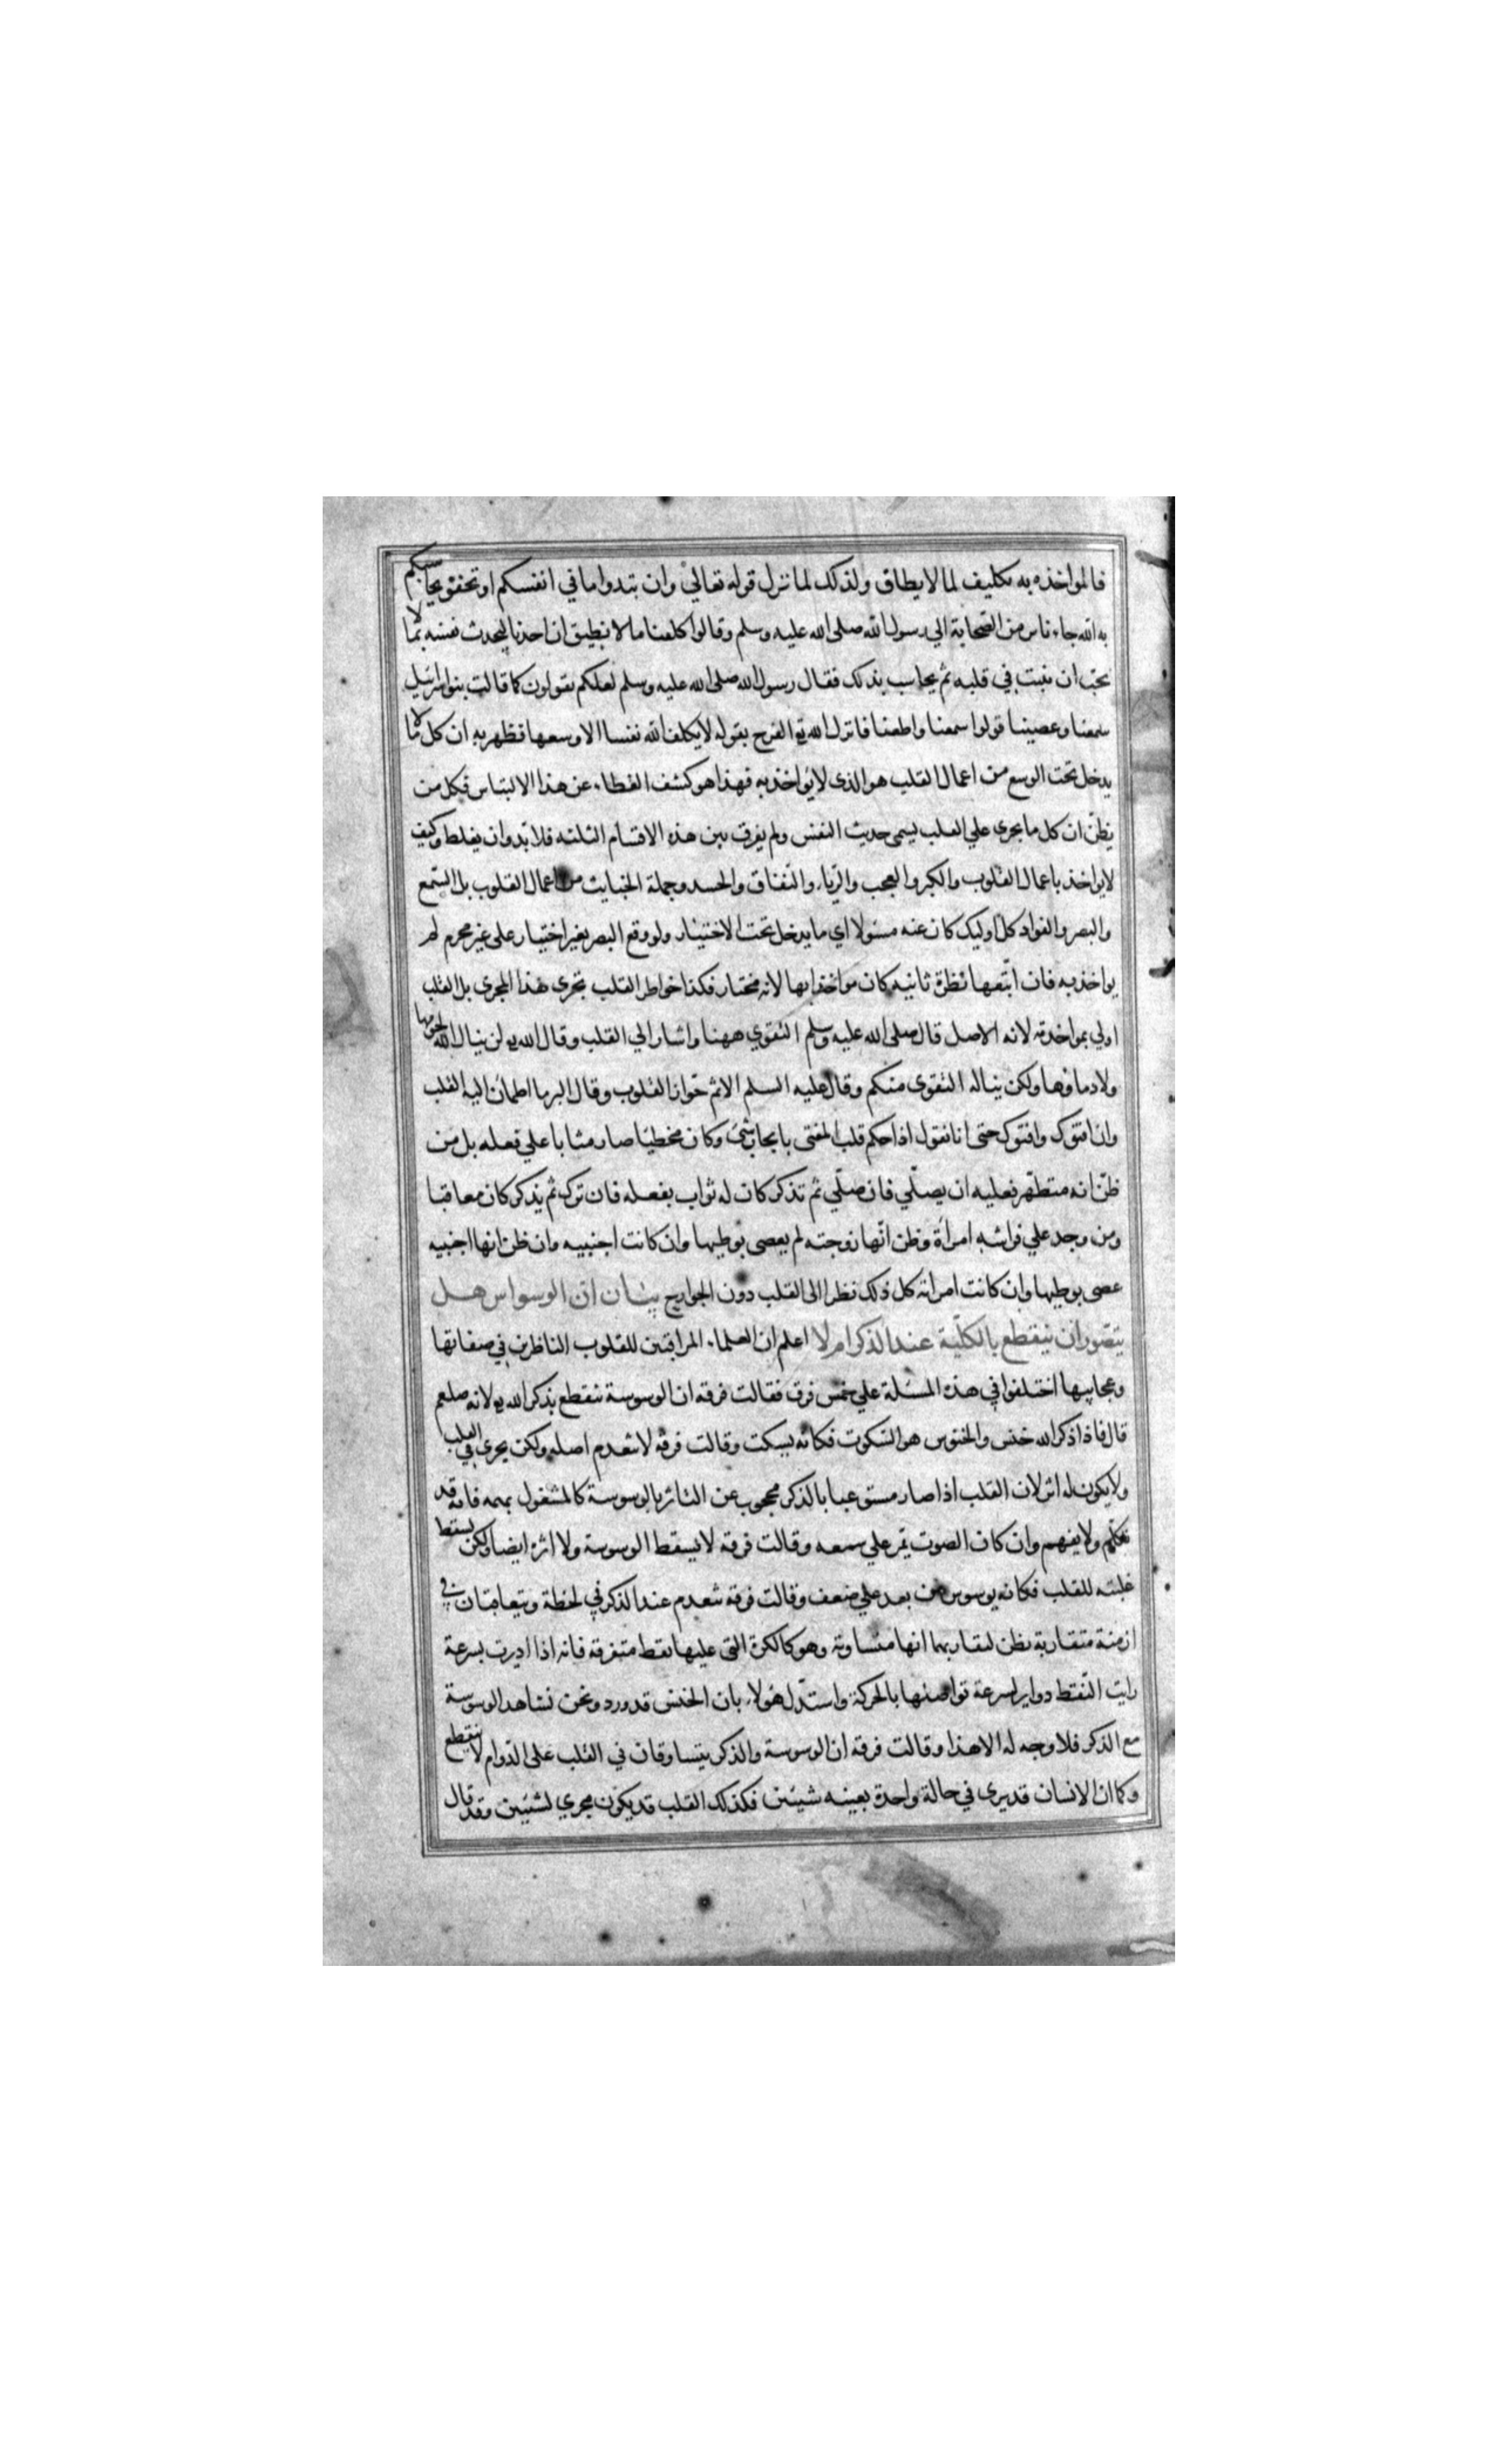 فالمواخذه به تكليف لما لايطاق ولذلك لما نزل قوله تعالي وان تبدوا ما في انفسكم او تخفوه يحاسبكم
به الله جاء ناس من الصحابة الي رسول الله صلى الله عليه وسلم وقالوا كلفنا ما لا نطيق ان احدنا ليحدث نفسه بما لا
يحب ان يثبت في قلبه ثم يحاسب بذلك فقال رسول الله صلى الله عليه وسلم لعلكم تقولون كما قالت بنوا اسرائيل
سمعنا وعصينا قولوا سمعنا واطعنا فانزل الله تع الفرج بقوله لا يكلف الله نفسا الا وسعها فظهر به ان كل ما لا
يدخل تحت الوسع من اعمال القلب هو الذى لا يؤاخذ به فهذا هو كشف الغطاء عن هذا الالتباس فكل من
يظن ان كل ما يجرى علي القلب يسمى حديث النفس ولم يفرق بين هذه الاقسام الثلثه فلا بد وان يغلط وكيف
لايواخذ باعمال القلوب والكبر والعجب والرياء والنفاق والحسد وجملة الخبايث من اعمال القلوب بل السمع
والبصر والفواد كل اوليك كان عنه مسئولا اي ما يدخل تحت الاختيار ولو وقع البصر بغير اختيار على غير محرم لم
يواخذ به فان اتبعها نظرة ثانيه كان مواخذا بها لانه مختار فكذا خواطر القلب تجرى هذا المجرى بل القلب
اولي بمواخذته لانه الاصل قال صلى الله عليه وسلم التقوي ههنا واشار الي القلب وقال الله تع لن ينال الله لحومها
ولا دماوها ولكن يناله التقوى منكم وقال عليه السلم الاثم حواز القلوب وقال البر ما اطمان اليه القلب
وان افتوك وافتوك حتى انا نقول اذا حكم قلب المفتى بايجاب شئ وكان مخطيا صار مثابا علي فعله بل من
ظن انه متطهر فعليه ان يصلي فان صلي ثم تذكر كان له ثواب بفعله فان ترك ثم يذكر كان معاقبا
ومن وجد علي فراشه امراة وظن انها زوجته لم يعصى بوطيها وان كانت اجنبيه وان ظن انها اجنبيه
عصى بوطيها وان كانت امراته كل ذلك نظرا الى القلب دون الجوارح بيان ان الوسواس هل
يتصور ان ينقطع بالكلية عند الذكر ام لا اعلم ان العلماء المراقبين للقلوب الناظرين في صفاتها
وعجايبها اختلفوا في هذه المسئلة علي خمس فرق فقالت فرقه ان الوسوسة تنقطع بذكر الله تع لانه صلعم
قال فاذا ذكر الله خنس والخنوس هو السكوت فكانه يسكت وقالت فرقه لا تنعدم اصله ولكن يجرى في القلب
ولا يكون له اثر لان القلب اذا صار مستوعبا بالذكر محجوب عن التاثر بالوسوسة كالمشغول بهمه فانه قد
تكلم ولا يفهم وان كان الصوت يمر علي سمعه وقالت فرقه لا يسقط الوسوسة ولا اثره ايضا ولكن يسقط
غلبته للقلب فكانه يوسوس من بعد علي ضعف وقالت فرقه تنعدم عند الذكر في لحظة ويتعاقبان في
ازمنة متقاربة يظن لتقاربها انها متساوقه وهو كالكرة التى عليها نقط متفرقه فانه اذا اديرت بسرعة
رايت النقط دواير لسرعة تواصلها بالحركة واستدل هولاء بان الخنس قد ورد ونحن نشاهد الوسوسة
مع الذكر فلا وجه له الا هذا وقالت فرقه ان الوسوسة والذكر يتساوقان في القلب على الدوام لا ينقطع
وكما ان الانسان قد يرى في حالة واحدة بعينه شيئين فكذلك القلب قد يكون مجري لشيئين فقد قال